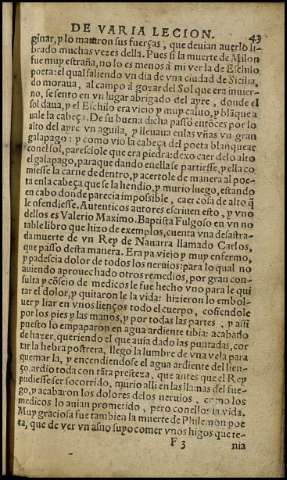 DE VARIA LECION. 43
ginar, y lo mataron sus fuerças, que deuian auerlo li-
brado muchas vezes della. Pues si la muerte de Milon
fue muy estraña, no lo es menos à mi ver la de Eschilo
poeta: el qual saliendo vn dia de vna ciudad de Sicilia,
do moraua, al campo à gozar del Sol que era inuier-
no, se sento en vn lugar abrigado del ayre, donde el
sol daua, y el Eschilo era viejo y muy caluo, y blãque a
uale la cabeça. De su buena dicha passo entõces por lo
alto del ayre vn aguila, y lleuaua en las vñas vn gran
galapago: y como vio la cabeça del poeta blanquear
con el sol, paresciole que era piedra: dexo caer de lo alto
el galapago, para que dando en ella se partiesse, y ella co
miesse la carne de dentro, y acertole de manera al poe-
ta en la cabeça que se la hendio, y murio luego, estando
en cabo donde parecia impossible, caer cosa de alto q̃
le ofendiesse. Autenticos autores escriuen esto, y vno
dellos es Valerio Maximo. Baptista Fulgoso en vn no
table libro que hizo de exemplos, cuenta vna desastra-
da muerte de vn Rey de Nauarra llamado Carlos,
que passo desta manera. Era ya viejo y muy enfermo,
y padescia dolor de todos los neruios: para lo qual no
auiendo aprouechado otros remedios, por gran con-
sulta y cõsejo de medicos le fue hecho vno para le qui
tar el dolor, y quitaron le la vida: hizieron lo embol-
uer y liar en vnos lienços todo el cuerpo, cosiendole
por los pies y las manos, y por todas las partes, y assi
puesto lo empaparon en agua ardiente tibia: acabado
de hazer, queriendo el que auia dado las puntadas, cor
tar la hebra postrera, llego la lumbre de vna vela para
quemar la, y encendiendose el agua ardiente del lien-
ço, ardio toda con tãta presteza, que antes que el Rey
pudiesse ser socorrido, murio alli en las llamas del fue-
go, y acabaron los dolores delos neruios, como los
medicos lo auian prometido, pero con ellos la vida.
Muy graciosa fue tambien la muerte de Philemon poe
ta, que de ver vn asno suyo comer vnos higos que te-
F 3 nia